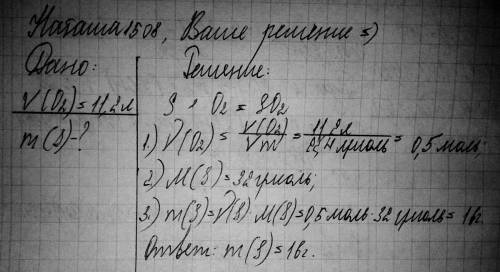 Наташа1508, Ваше решение =)
Дано: Решение:
V(O₂)=11,2л S + O₂ = SO₂
m(S)-? 1.) ν(O₂) = V(O₂)/Vm = 11,2л/22,4л/моль = 0,5 моль;
2.) M(S)=32г/моль;
3.) m(S)=ν(S)·M(S)=0,5моль·32г/моль=16г.
Ответ: m(S)=16г.